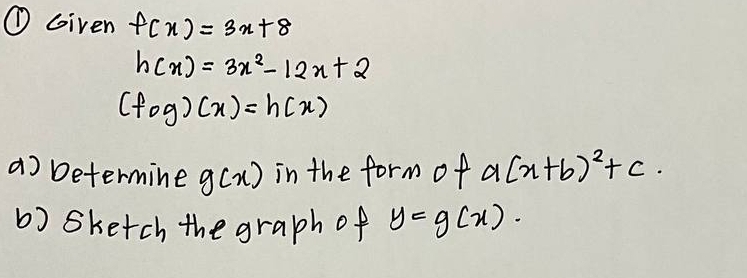 ① Given f(x) = 3x+8
h(x) = 3x²-12x+2
(fog)(x)=h(x)
a) Determine g(x) in the form of a(x+b)²+c.
b) Sketch the graph of y=g(x).